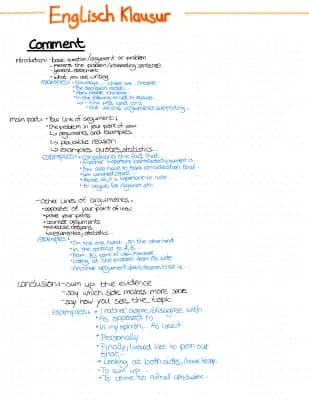 Englisch Klausur
Comment
introduction - basic question/argument or problem
- present the problem
- general statement
- what you are writing
examples: • Nowadays... there are... /people
• The discussion about...
• Many people think
• In the following I want to discuss
↳ - the pros and cons
- the various arguments supporting...
main part: • Your line of argument:
• the problem in your point of view
↳ arguments and examples
↳ plausible reason
↳ examples, quotes, statistics...
examples: • Considering the fact that...
• Another important point/aspect/argument is...
• You also have to take into consideration that
• I am convinced that
• Above all, it is important to note...
• to argue for/against sth.
- other lines of arguments:
• opposite of your point of view
• counter arguments
examples: • On the one hand... on the other hand
• In the contrast to A, B...
• From B's point of view, however
• Looking at the problem from B's side
• Another argument/point/reason is...
conclusion: - sum up the evidence
- say which side makes more sense
- say how you see the topic
examples: • I rather agree/disagree with
• As opposed to
• In my opinion,... As I see it
• Personally
• Finally, I would like to point out
that...
• Looking at both sides, I have to say...
• To sum up...
• To come to a final conclusion...